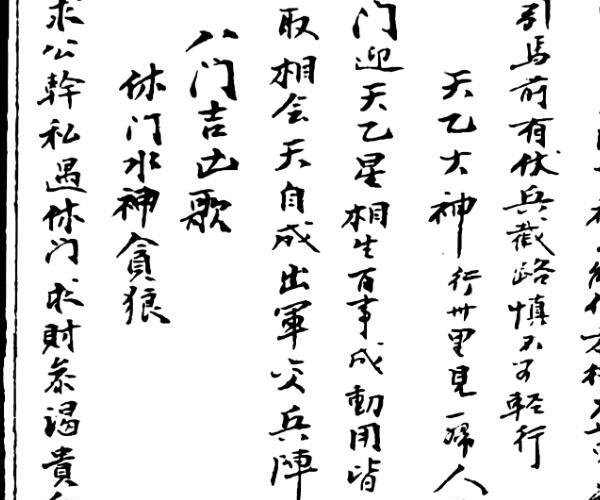 引馬前有伏兵截路慎不可輕行
天乙大神行卅里見一婦人
门迎天乙星相生百事成動用皆
取相会天自成出軍交兵陣
八门吉凶歌
休门水神貪狼
求公幹私遇休门求財叅謁貴